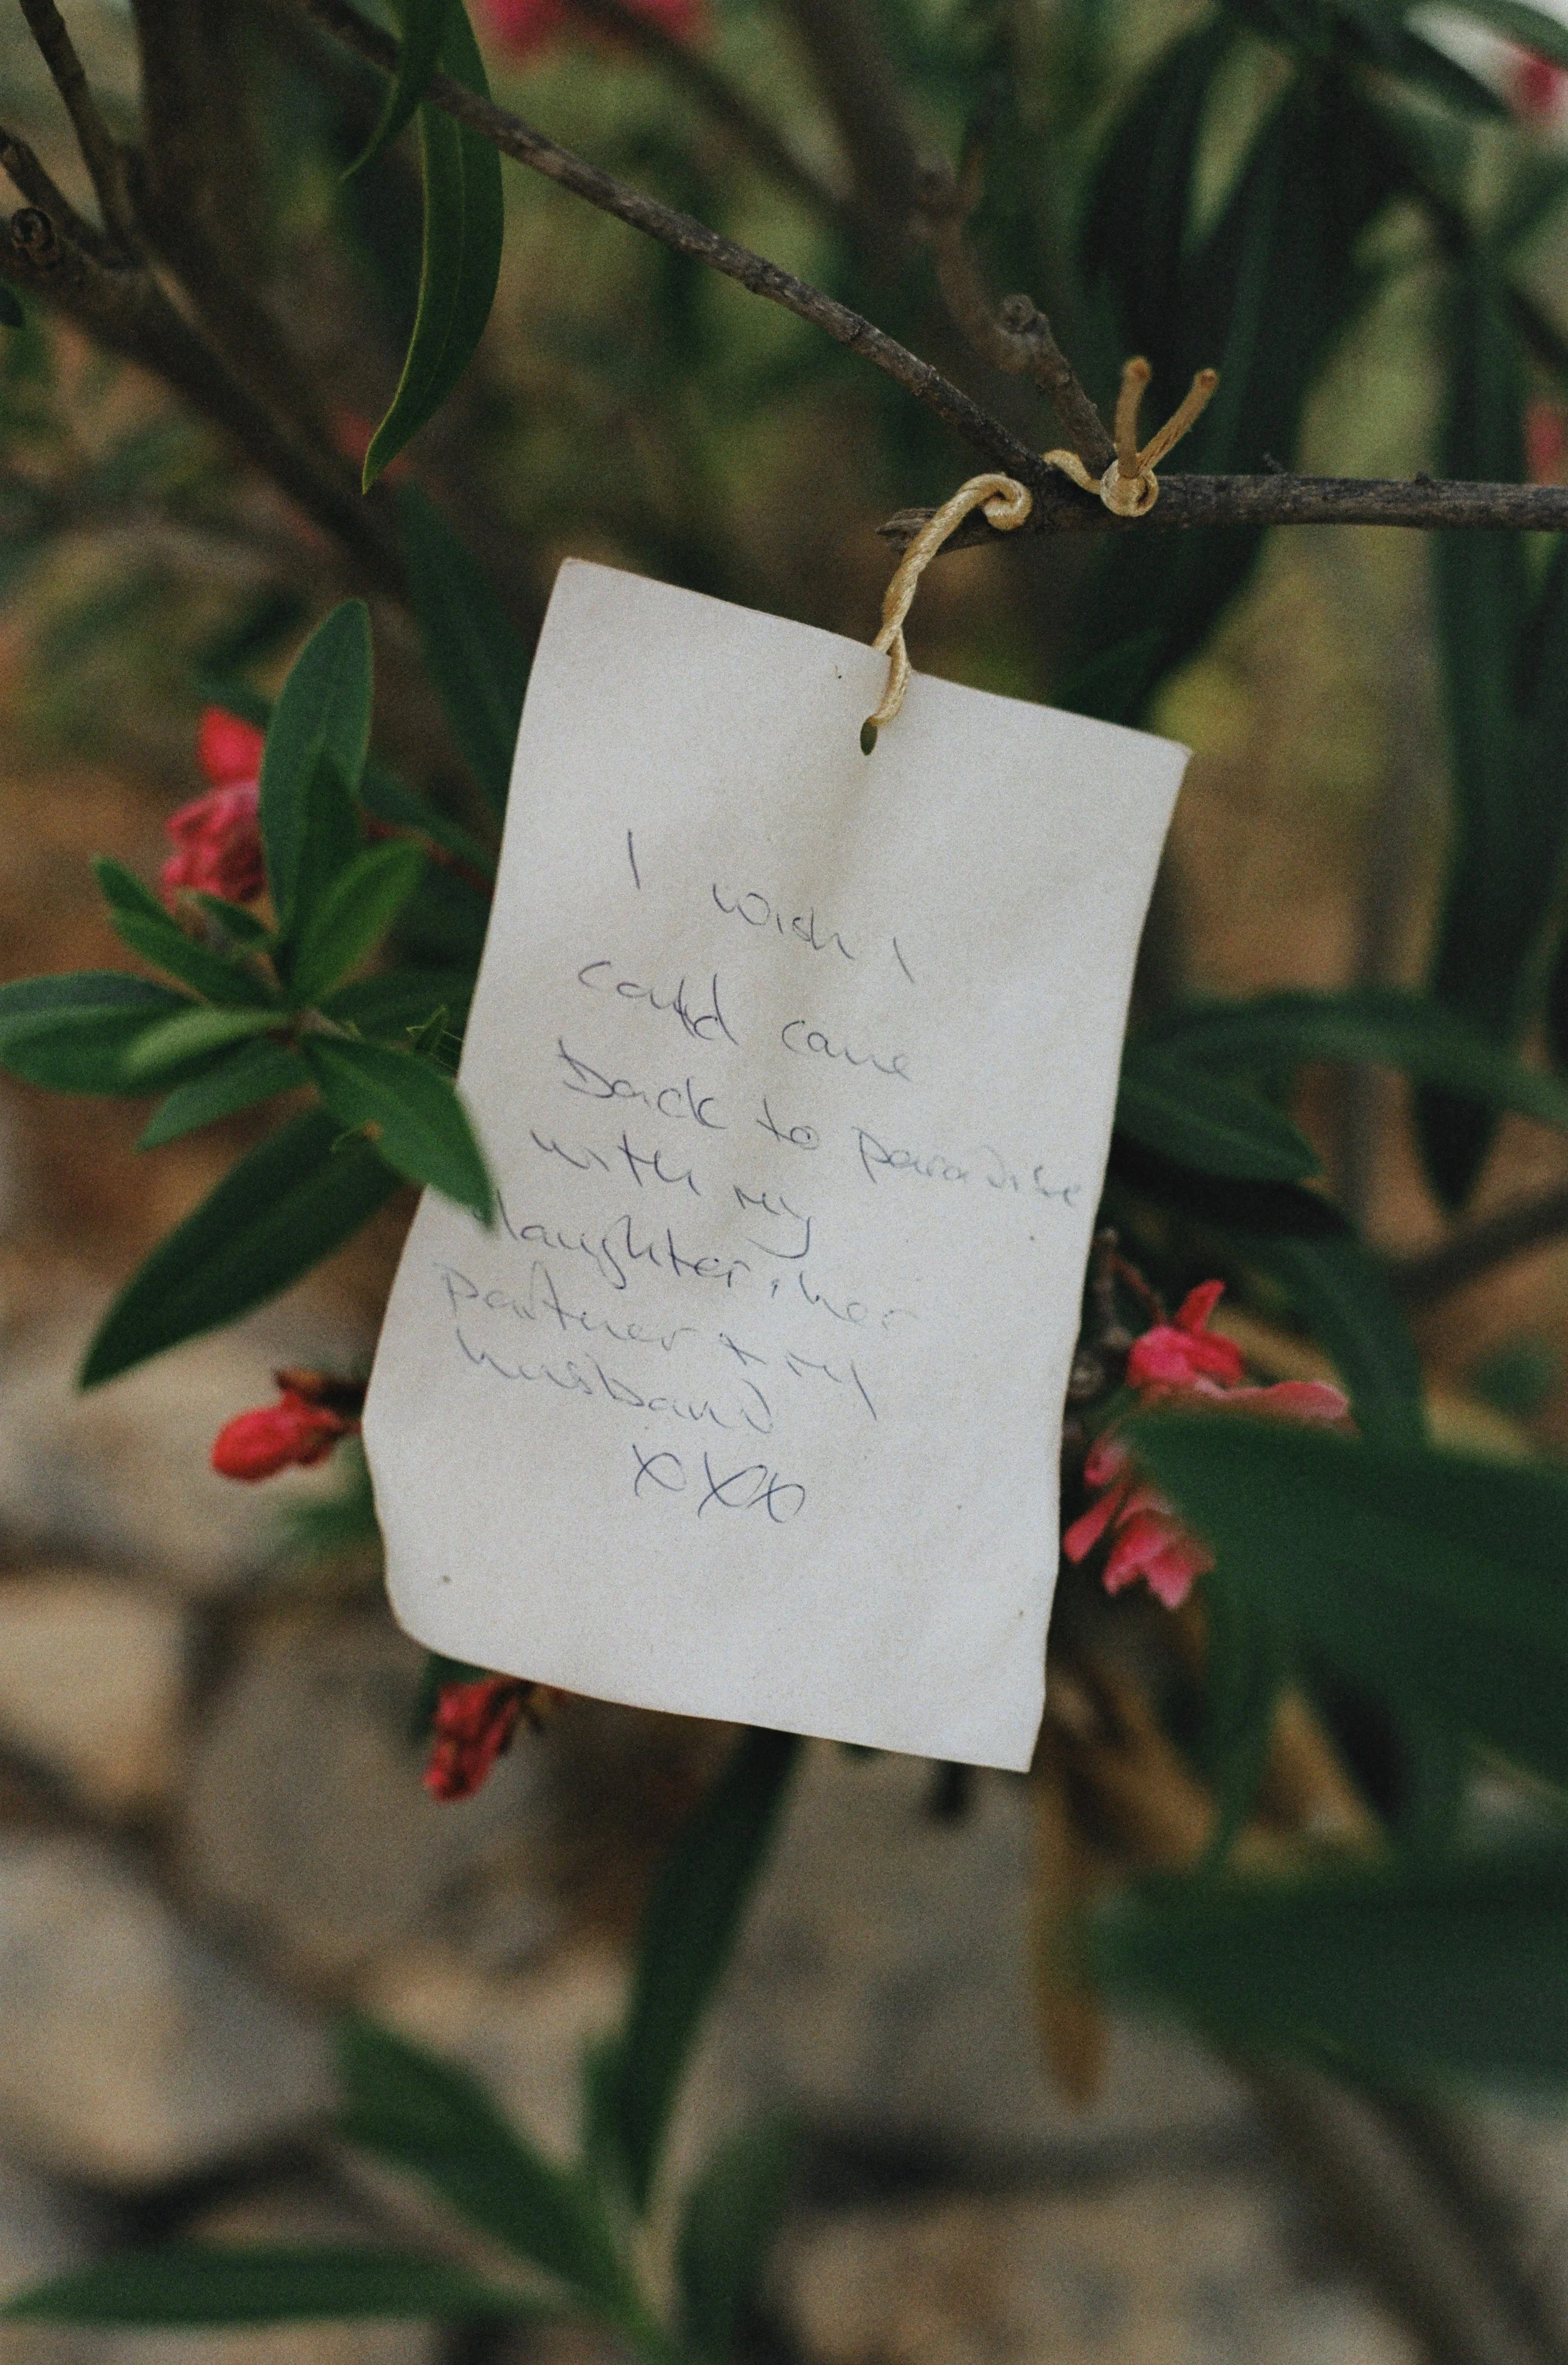 I wish I
could come
back to paradise
with my
daughter, her
partner + my
husband
xxx